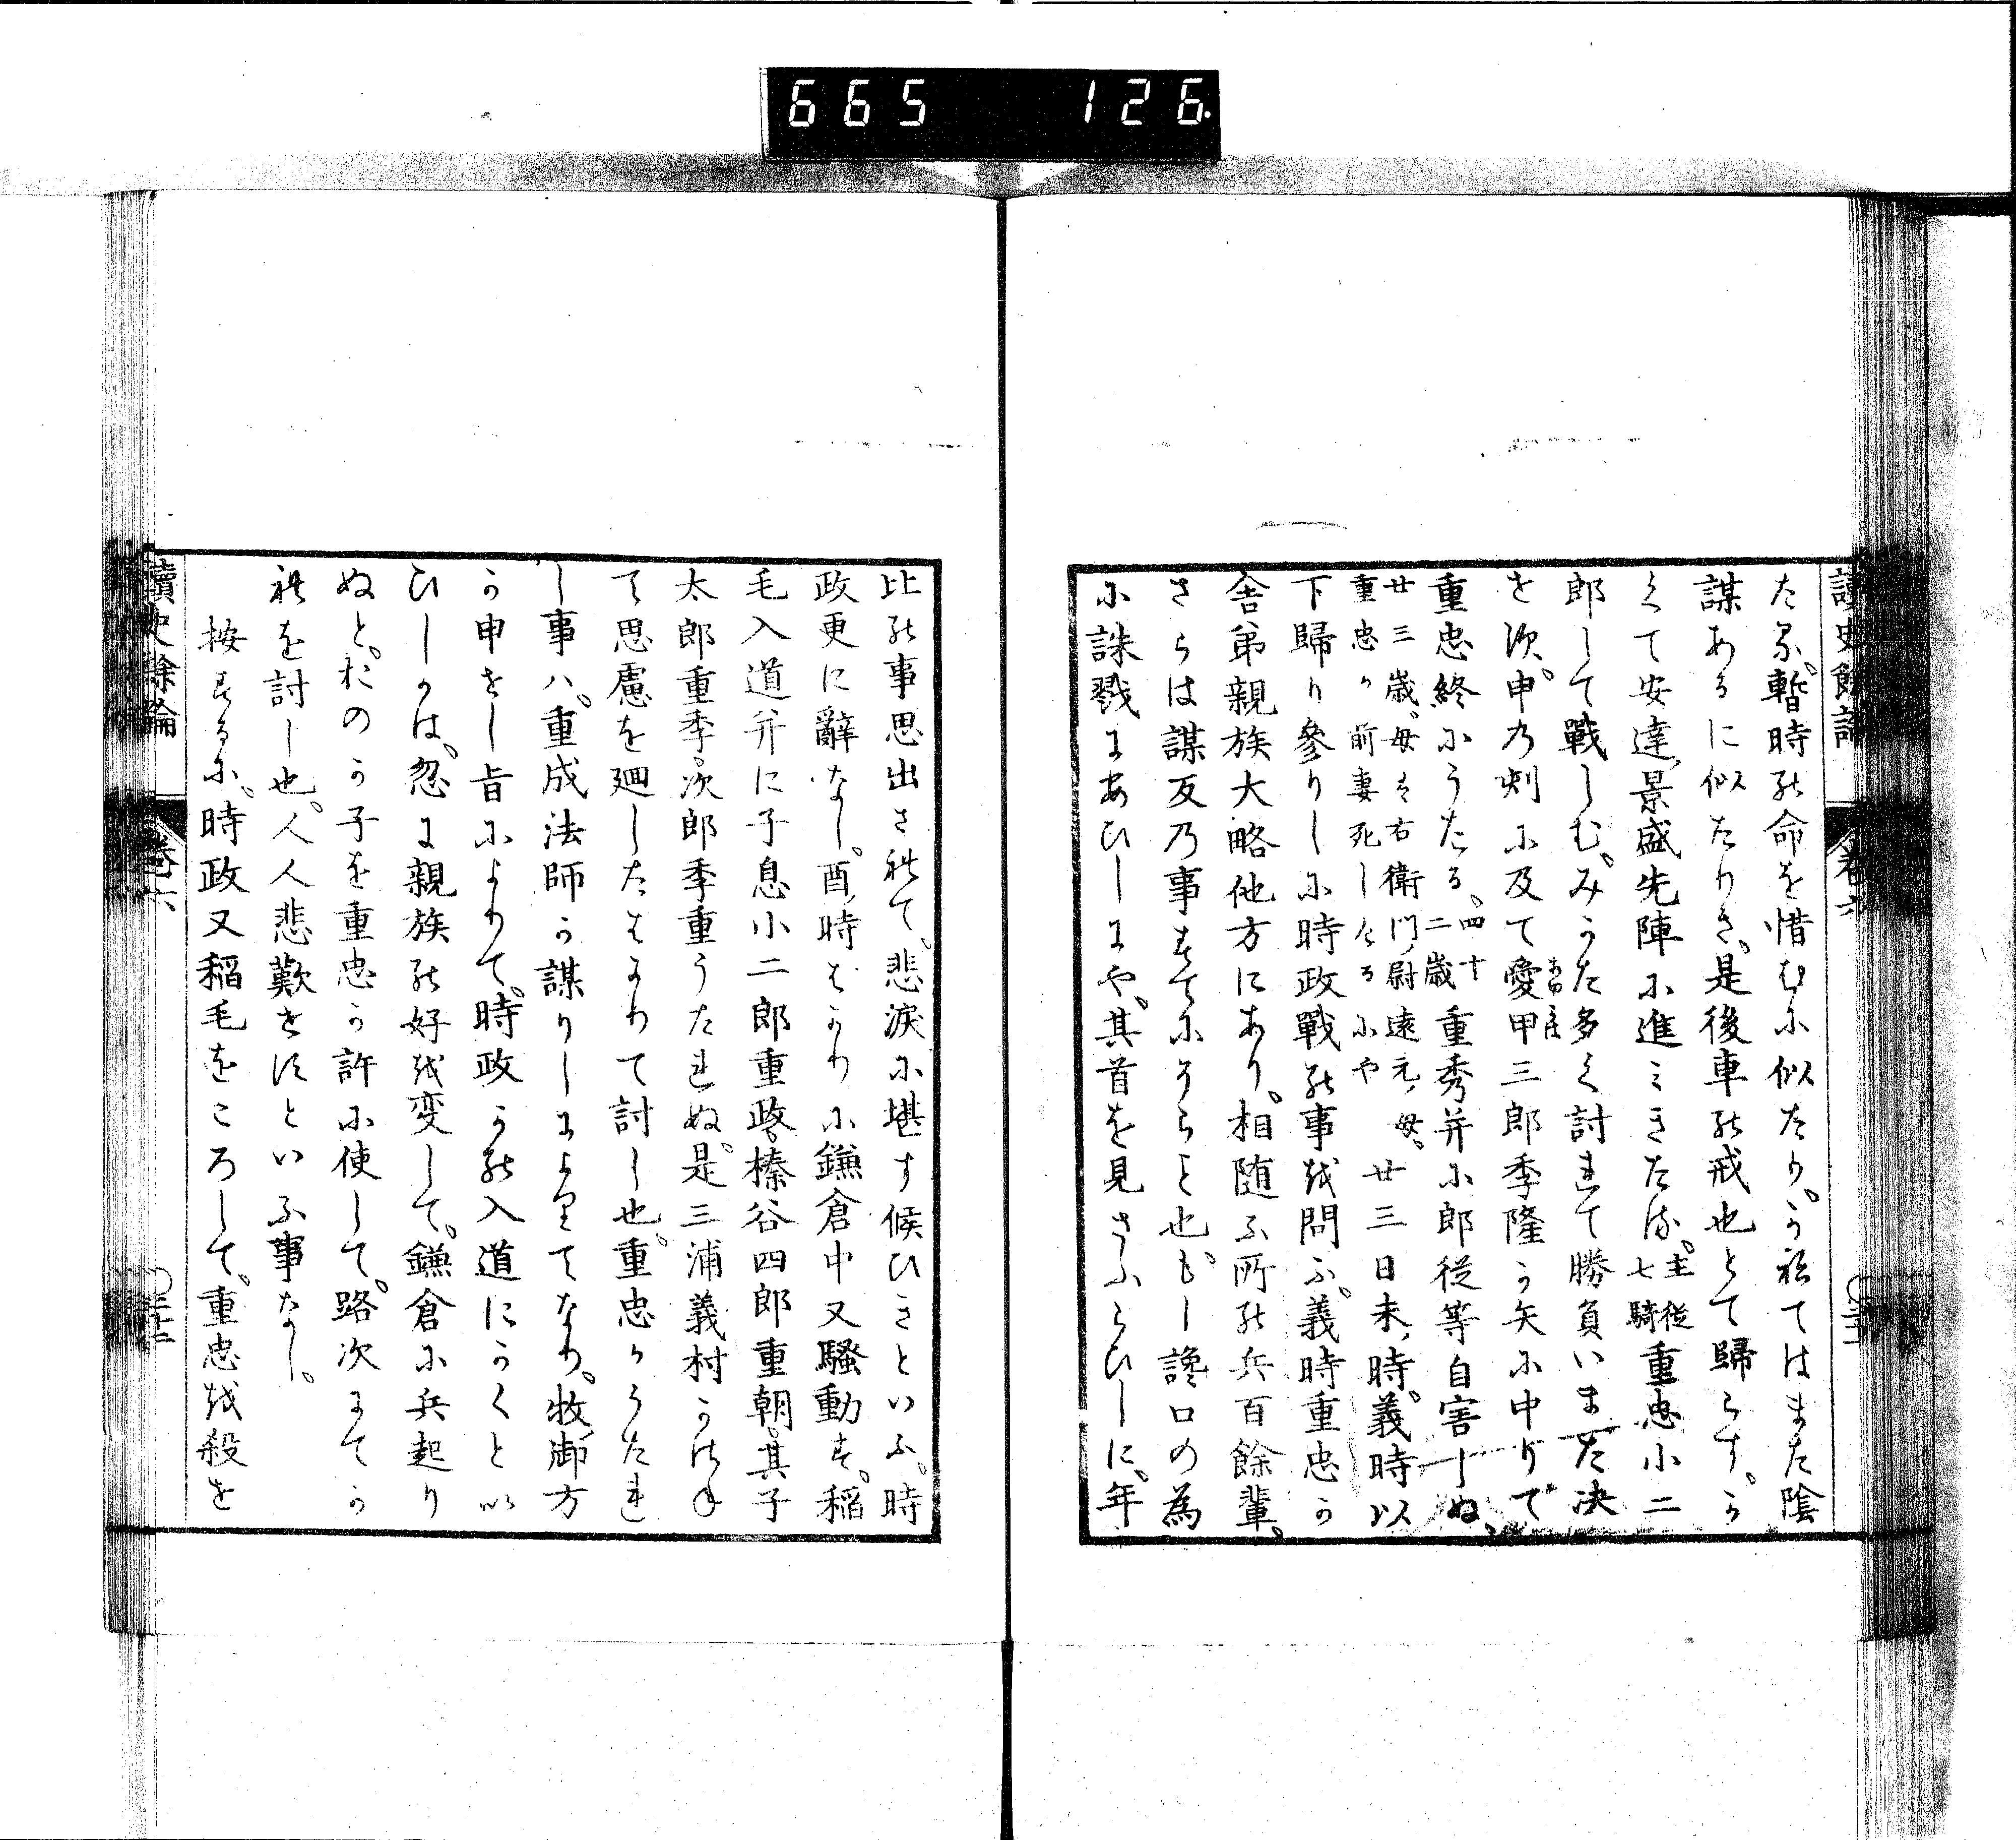 665 126.
讀史餘論 卷六
たる。暫時の命を惜むに似たり。かねてはまた陰
謀あるに似たりき。是後車の戒也とて歸らす。か
くて安達景盛先陣に進ミきたる。主従七騎 重忠小二
郎して戰しむ。みかた多く討れて勝負いまた決
せす。申の刻に及て愛甲三郎季隆か矢に中りて
重忠終にうたる。四十二歳 重秀并に郎従等自害しぬ。
廿三歳。母は右衛門尉遠元母。
重忠か前妻死しけるにや
廿三日未時。義時以
下歸り參りしに時政戰の事を問ふ。義時重忠か
舎弟親族大略他方にあり。相随ふ所の兵百餘輩。
さらは謀反の事すてにそらこと也。もし讒口の為
に誅戮にあひしにや。其首を見さふらひしに。年
比の事思出されて。悲涙に堪す候ひきといふ。時
政更に辭なし。酉時はかりに鎌倉中又騒動す。稲
毛入道并に子息小二郎重政。榛谷四郎重朝。其子
太郎重季。次郎季重うたれぬ。是三浦義村かかね
て思慮を廻したはかりて討し也。重忠かうたれ
し事ハ。重成法師か謀りしによりてなり。牧御方
か申せし旨によりて。時政かの入道にかくとい
ひしかは。忽に親族の好を変して。鎌倉に兵起り
ぬと。おのか子を重忠か許に使して。路次にてか
れを討し也。人人悲歎せすといふ事なし。
按するに。時政又稲毛をころして。重忠を殺せ
讀史餘論 卷六